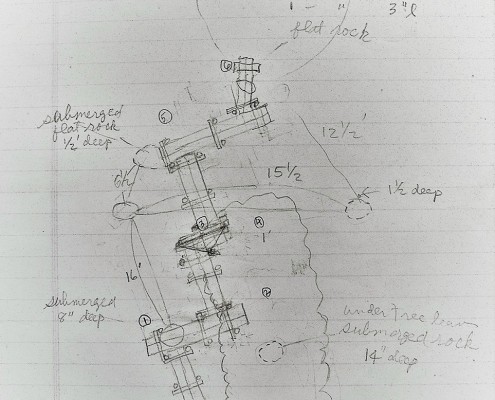 1 - " 3"l
flat rock
6
submerged
flat rock
½' deep
5
12½'
6½
15½
1½ deep
3
4
1'
16'
2
submerged
8" deep
1
under tree beam
submerged rock
14" deep